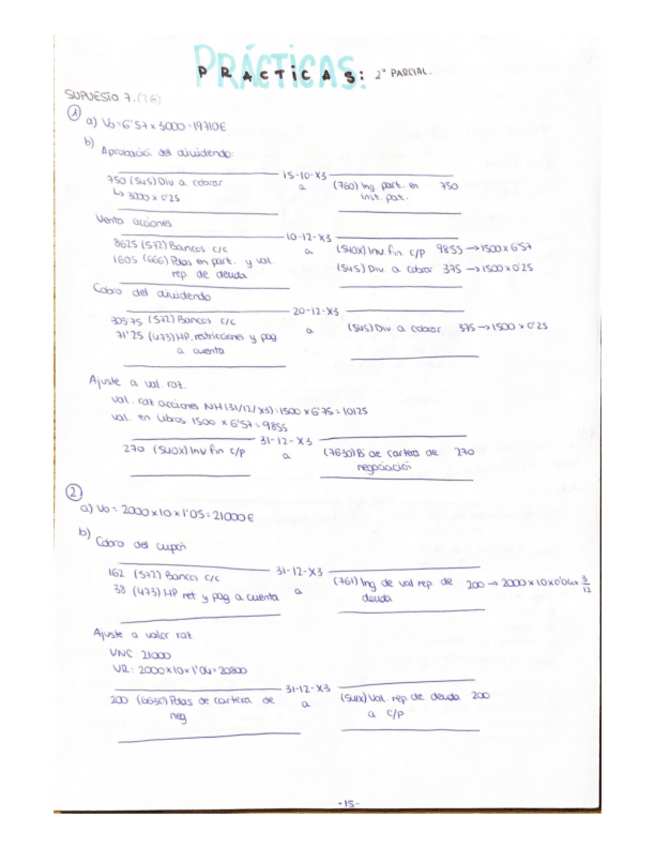 PRÁCTICAS:
PRACTICAS: 2º PARCIAL.
SUPUESTO 7. (T6)
① a) Vo = 6'57 x 3000 = 19710€
b) Aprobación del dividendo:
15-10-X3
750 (545) Div a cobrar a (760) Ing. part. en 750
↳ 3000 x 0'25 inst. pat.
Venta acciones
10-12-X3
8625 (572) Bancos c/c a (540x) Inv. fin c/p 9855 → 1500 x 6'57
1605 (666) Pdas en part. y val. (545) Div. a cobrar 375 → 1500 x 0'25
rep. de deuda
Cobro del dividendo
20-12-X3
303'75 (572) Bancos c/c a (545) Div a cobrar 375 → 1500 x 0'25
71'25 (473) HP, retricciones y pag
a cuenta
Ajuste a val. raz.
val. raz acciones NH (31/12/X3): 1500 x 6'75 = 10125
val. en libros 1500 x 6'57 = 9855
31-12-X3
270 (540x) Inv fin c/p a (7630) B de cartera de 270
negociación
② a) Vo = 2000 x 10 x 1'05 = 21000€
b) Cobro del cupón
31-12-X3
162 (572) Bancos c/c a (761) Ing de val rep de 200 → 2000 x 10 x 0'04 x 3/12
38 (473) HP ret y pag a cuenta deuda
Ajuste a valor raz
VNC: 21000
VR: 2000 x 10 x 1'04 = 20800
31-12-X3
200 (6630) Pdas de cartera de a (541x) Val. rep de deuda 200
neg a c/p
-15-